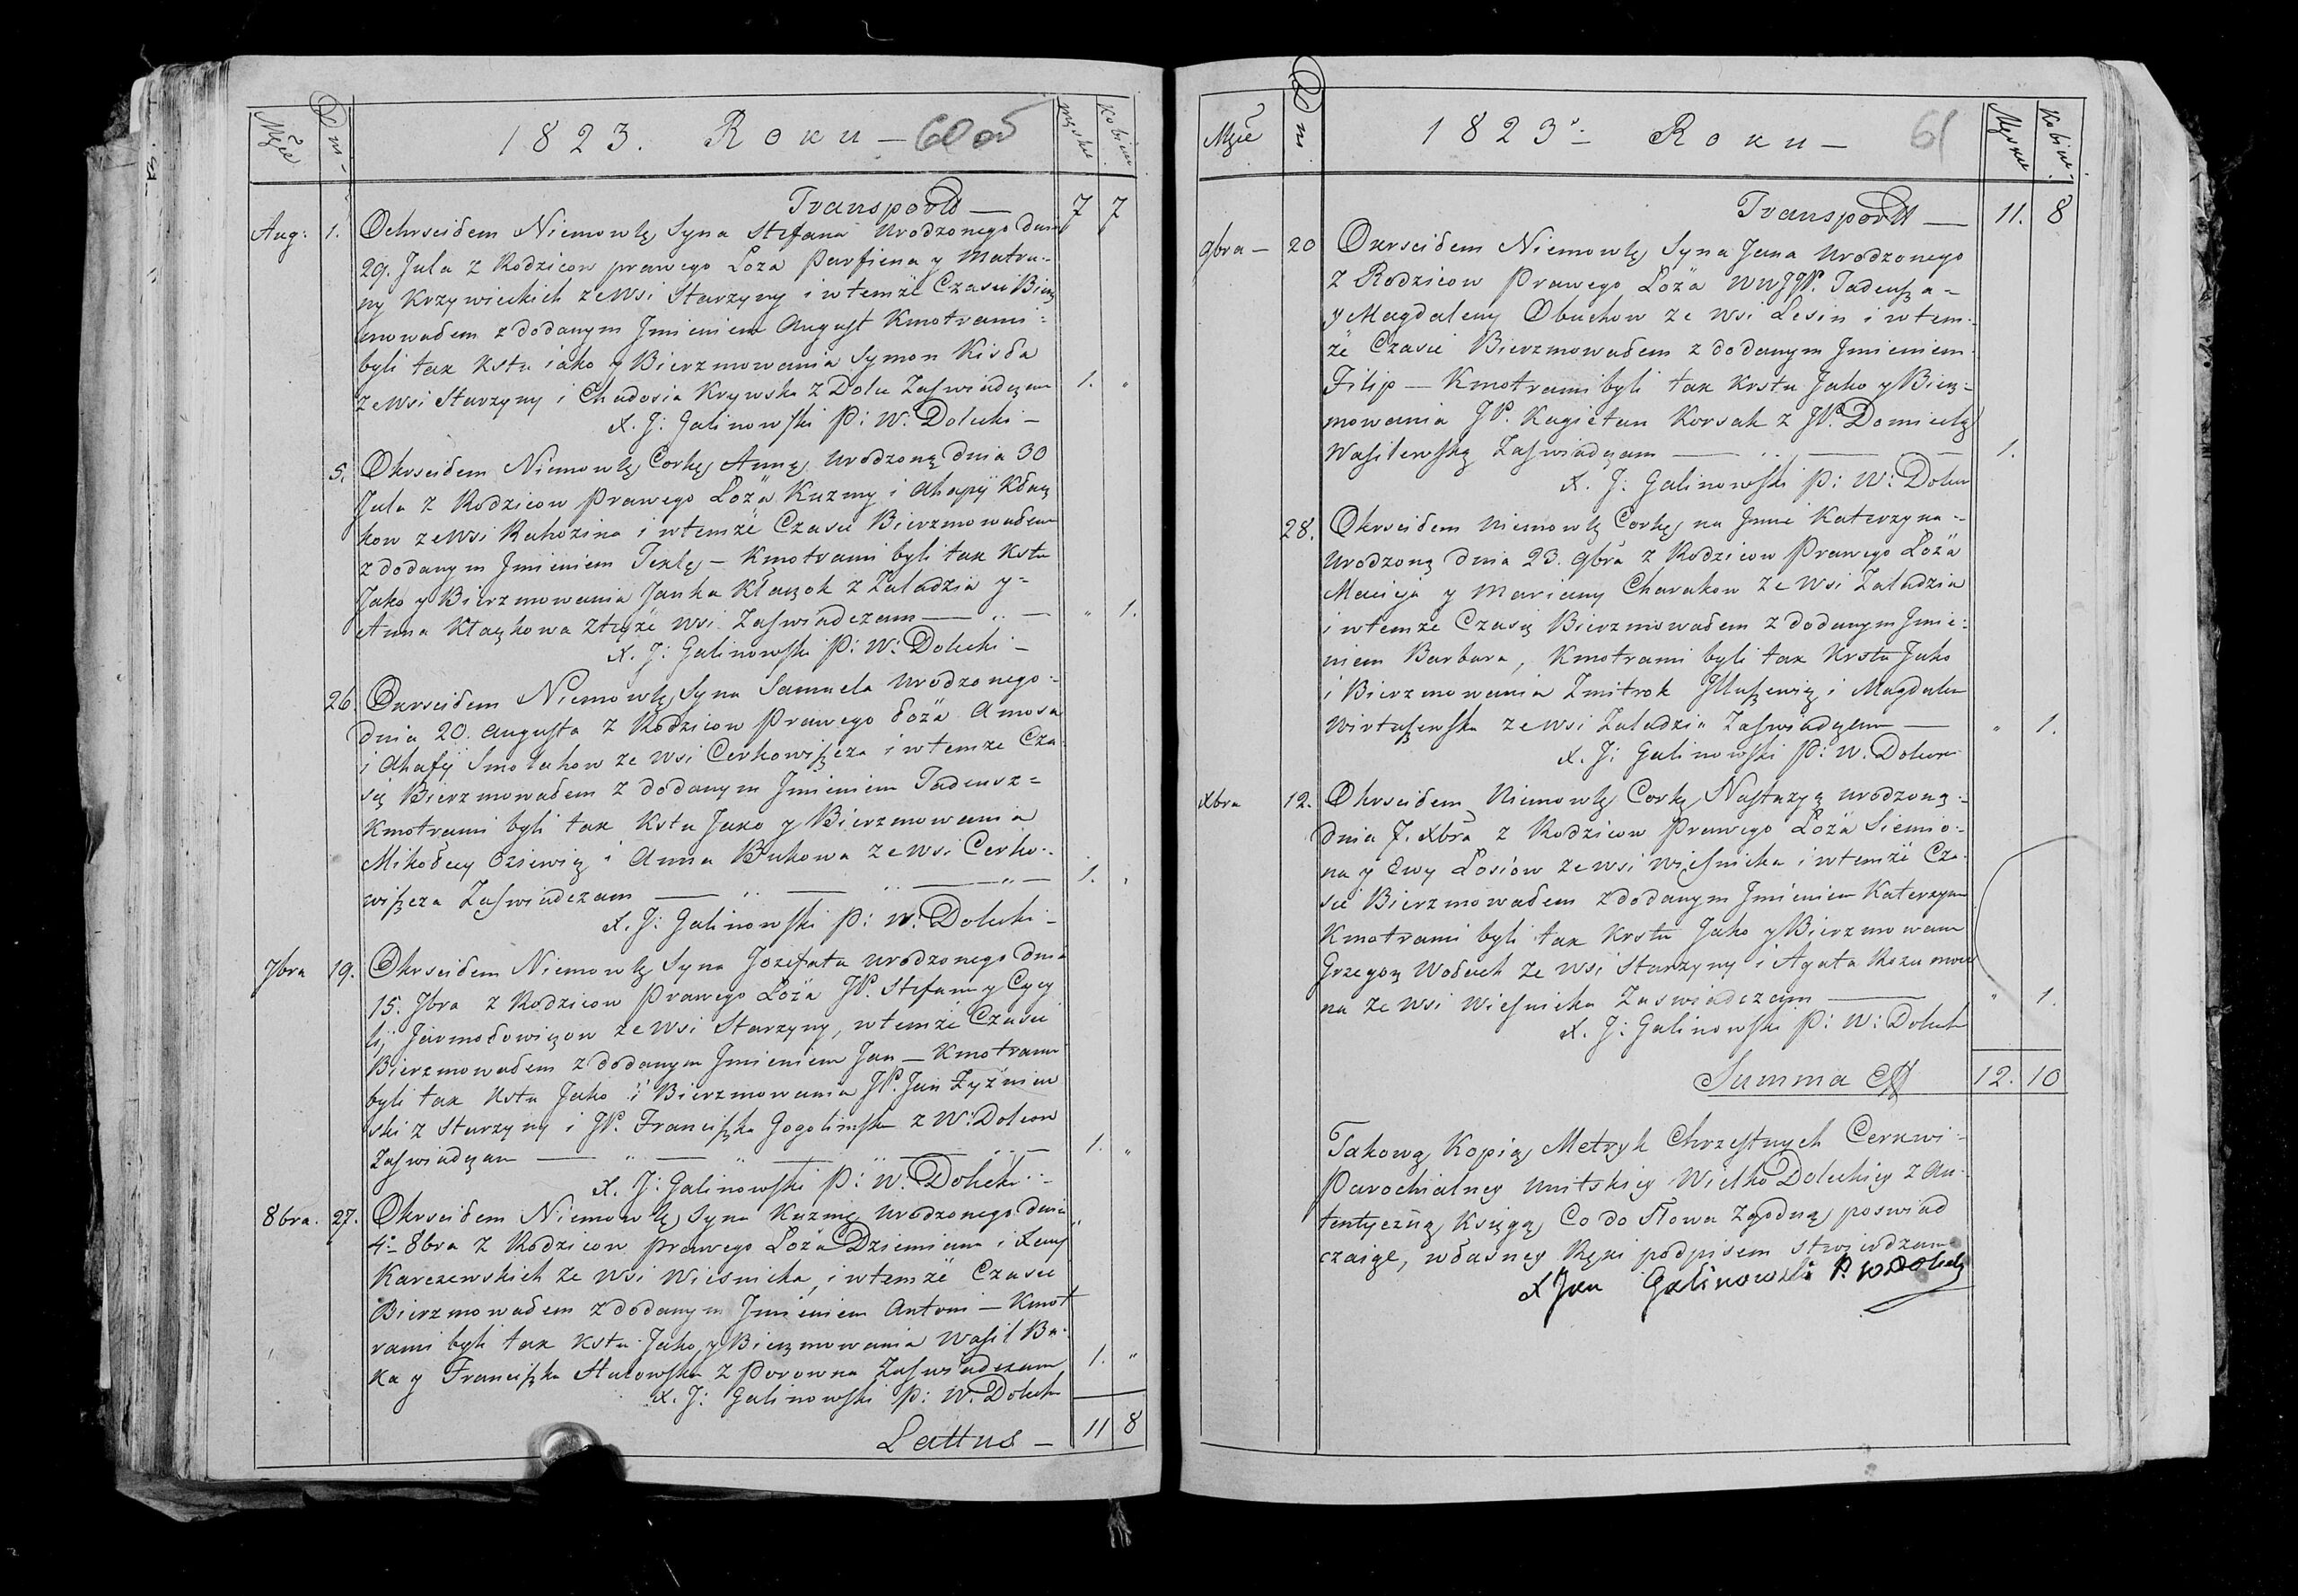 Mcłe Dni 1823. Roku — 60 об Męskie Kobiece
Transportt — 7 7
Aug: 1. Ochrscidem Niemowlę Syna Stefana Urodzonego dnia
29. Jula z Rodzicow prawego Łoża Parfiena y Matru-
ny Krzywickich ze Wsi Starzyny i w temże Czasie Bierz
mowałem z dodanym Jmieniem August Kmotrami
byli tak Kstu iako y Bierzmowania Symon Kisła
ze Wsi Starzyny i Chadosia Krywska z Dołu Zaświadczam 1. "
X. J: Galinowski P: W: Dolecki —
5. Okrscidem Niemowlę Corkę Annę Urodzoną dnia 30
Jula z Rodzicow Prawego Łoża Kuzmy i Ahapij Kłacz
kow ze Wsi Rahozina i w temże Czasie Bierzmowałem
z dodanym Jmieniem Teklę — Kmotrami byli tak Kstu
Jako y Bierzmowania Janka Kłaczok z Zaladzia y
Anna Kłaczkowa z teyże Wsi Zaświadczam — " — " 1.
X. J: Galinowski P: W: Dolecki —
26. Okrscidem Niemowlę Syna Samuela Urodzonego
dnia 20. Augusta z Rodzicow Prawego Łoża Amosa
i Ahafij Smolakow ze Wsi Cerkowiszcza i w temże Cza
się Bierzmowałem z dodanym Jmieniem Tadeusz =
Kmotrami byli tak Kstu Jako y Bierzmowania
Mikołay Osiewicz i Anna Bukowa ze Wsi Cerko-
wiszcza Zaświadczam — " — " — " — 1. "
X. J: Galinowski P: W: Dolecki —
7bra 19. Okrscidem Niemowlę Syna Jozefata Urodzonego dnia
15. 7bra z Rodzicow Prawego Łoża JP. Stefana y Cycy
lij Jarmołowiczow ze Wsi Starzyny, w temże Czasie
Bierzmowałem z dodanym Jmieniem Jan — Kmotrami
byli tak Kstu Jako i Bierzmowania JP. Jan Zyźniew
ski z Starzyny i JP. Franciszka Gogolinska z W: Dolcow
Zaświadczam — " — " — " — 1. "
X. J: Galinowski P: W: Dolecki —
8bra. 27. Okrscidem Niemowlę Syna Kuzmę Urodzonego dnia
4º 8bra z Rodzicow prawego Łoża Dziemiana i Xeni
Karczewskich ze Wsi Wiesnicka, i w temże Czasie
Bierzmowałem z dodanym Jmieniem Antoni — Kmot
rami byli tak Kstu Jako y Bierzmowania Wasil Bu-
ka y Franciszka z Porowna Zaświadczam 1. "
X. J: Galinowski P: W. Dolecki
Lattus — 11 8
Mcłe Dni 1823º Roku — 61 Męskie Kobiece
Transportt — 11. 8
9bra — 20 Okrscidem Niemowlę Syna Jana Urodzonego
z Rodzicow Prawego Łoża WWJJP. Tadeusza =
y Magdaleny Obuchow ze Wsi Lesin i w tem-
że Czasie Bierzmowałem z dodanym Jmieniem
Filip — Kmotrami byli tak Krstu Jako y Bierz-
mowania JP. Kagietan Korsak z JP. Domicelą
Wasilewską Zaświadczam — " — 1.
X. J: Galinowski P: W: Dolcow
28. Okrscidem Niemowlę Corkę na Jmie Katerzyna -
Urodzoną dnia 23. 9bra z Rodzicow Prawego Łoża
Macieja y Mariany Charukow ze Wsi Zaladzia
i w temże Czasię Bierzmowałem z dodanym Jmie:
niem Barbara, Kmotrami byli tak Krstu Jako
i Bierzmowania Zmitrok i Magdalena
ze Wsi Zaladzia Zaświadczam — " 1.
X. J: Galinowski P: W. Dolcow
Xbra 12. Okrscidem Niemowlę Corkę Nastazyę urodzoną -
dnia 7. Xbra z Rodzicow Prawego Łoża Siemio-
na y Ewy Łosiow ze Wsi Wiesnicka i w temże Cza-
sie Bierzmowałem z dodanym Jmieniem Katerzyna
Kmotrami byli tak Krstu Jako y Bierzmowania
Grzegorz Wołuch ze Wsi Starzyny i Agata
na ze Wsi Wiesnicka Zaswiadczam — " 1.
X. J: Galinowski P: W: Dolecki
Summa 12. 10
Takową Kopią Metryk Chrzestnych Cerkwi -
Parochialney Unitskiey Wielko Doleckiey z Au-
tentyczną Księgą Co do Słowa Zgodną poswiad
czaiąc, własney Ręki podpisem stwierdzam
X Jan Galinowski P. W Dolecki